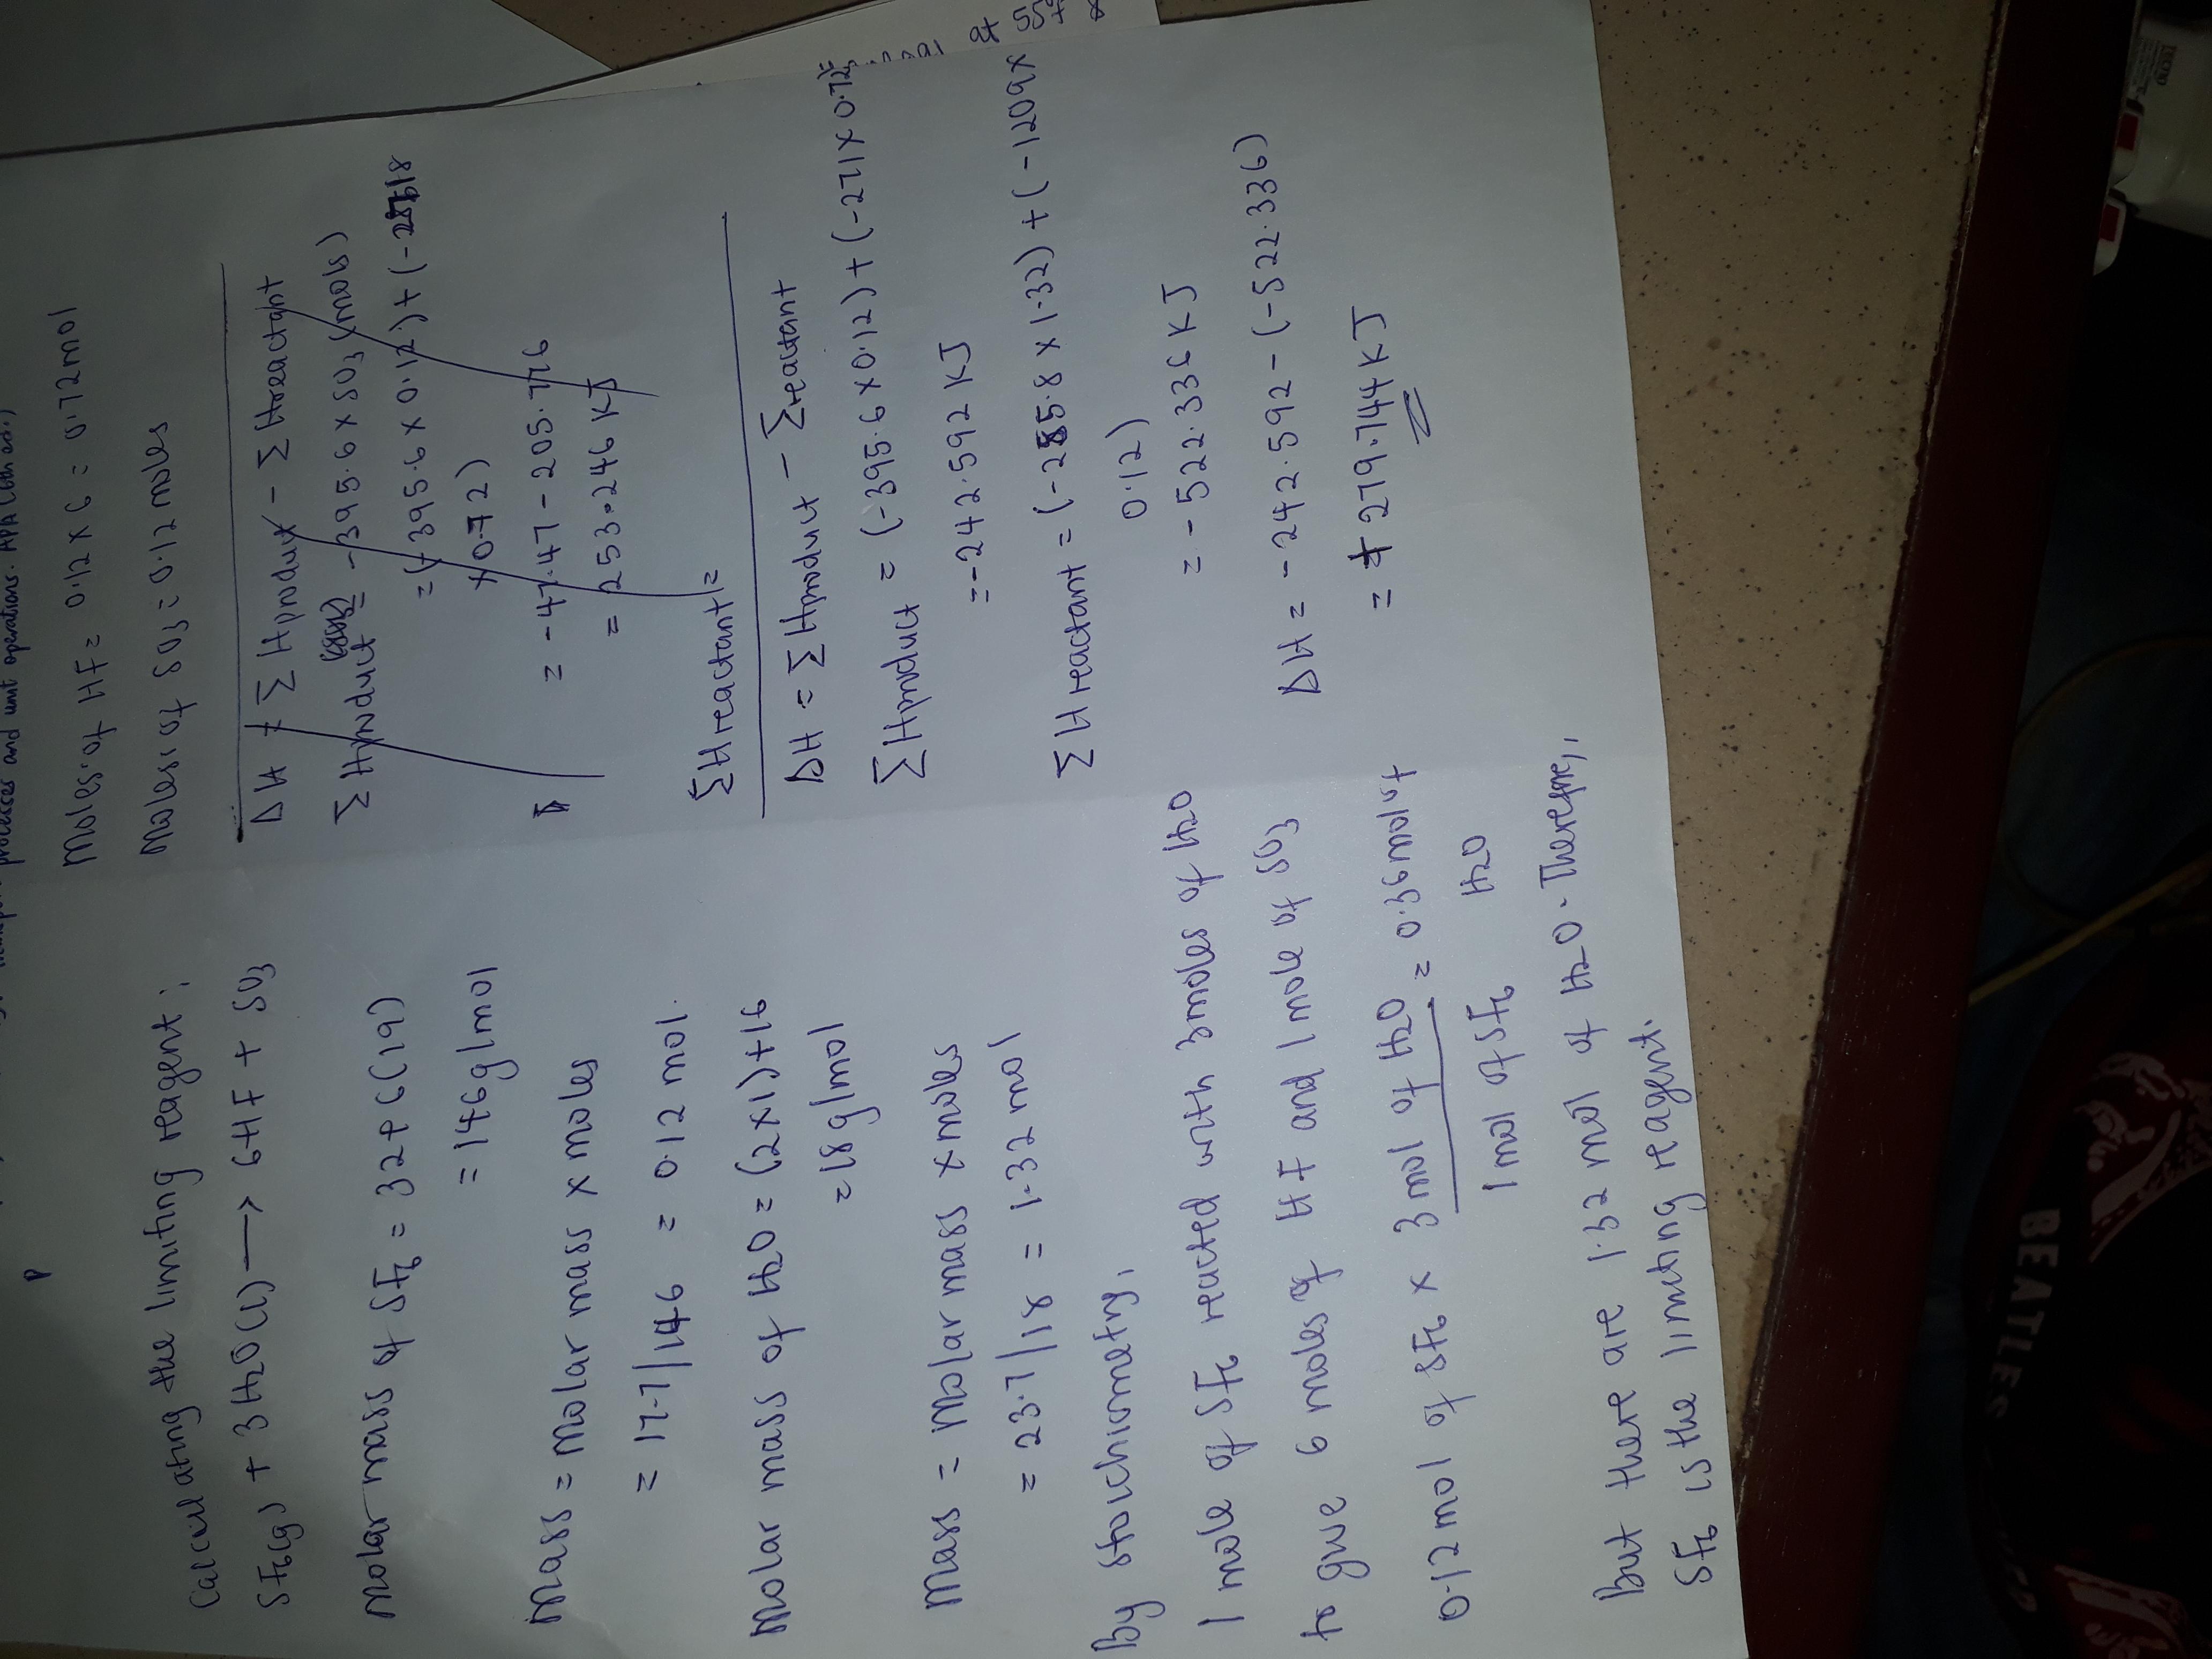 processes and unit operations. APA (6th ed.)
Calculating the limiting reagent;
SF6(g) + 3H2O(l) → 6HF + SO3
Molar mass of SF6 = 32+6(19)
= 146g/mol
Mass = Molar mass x moles
= 17.7/146 = 0.12 mol.
Molar mass of H2O = (2x1)+16
= 18g/mol
Mass = Molar mass x moles
= 23.7/18 = 1.32 mol
By stoichiometry,
1 mole of SF6 reacted with 3moles of H2O
to give 6 moles of HF and 1 mole of SO3
0.12 mol of SF6 x 3 mol of H2O = 0.36mol of
1 mol of SF6 H2O
But there are 1.32 mol of H2O. Therefore,
SF6 is the limiting reagent.
Moles of HF = 0.12 x 6 = 0.72mol
Moles of SO3 = 0.12 moles
ΔH = Σ Hproduct - Σ Hreactant
Σ Hproduct = -395.6 x SO3 (mols)
= (-395.6 x 0.12) + (-
x 0.72)
= -47.47 - 205.776
= 253.246 KJ
ΣHreactant =
ΔH = Σ Hproduct - Σreactant
Σ Hproduct = (-395.6 x 0.12) + (-271 x 0.72)
= -242.592 KJ
Σ H reactant = (-285.8 x 1.32) + (-1209 x
0.12)
= -522.336 KJ
ΔH = -242.592 - (-522.336)
= + 279.744 KJ
BEATLES